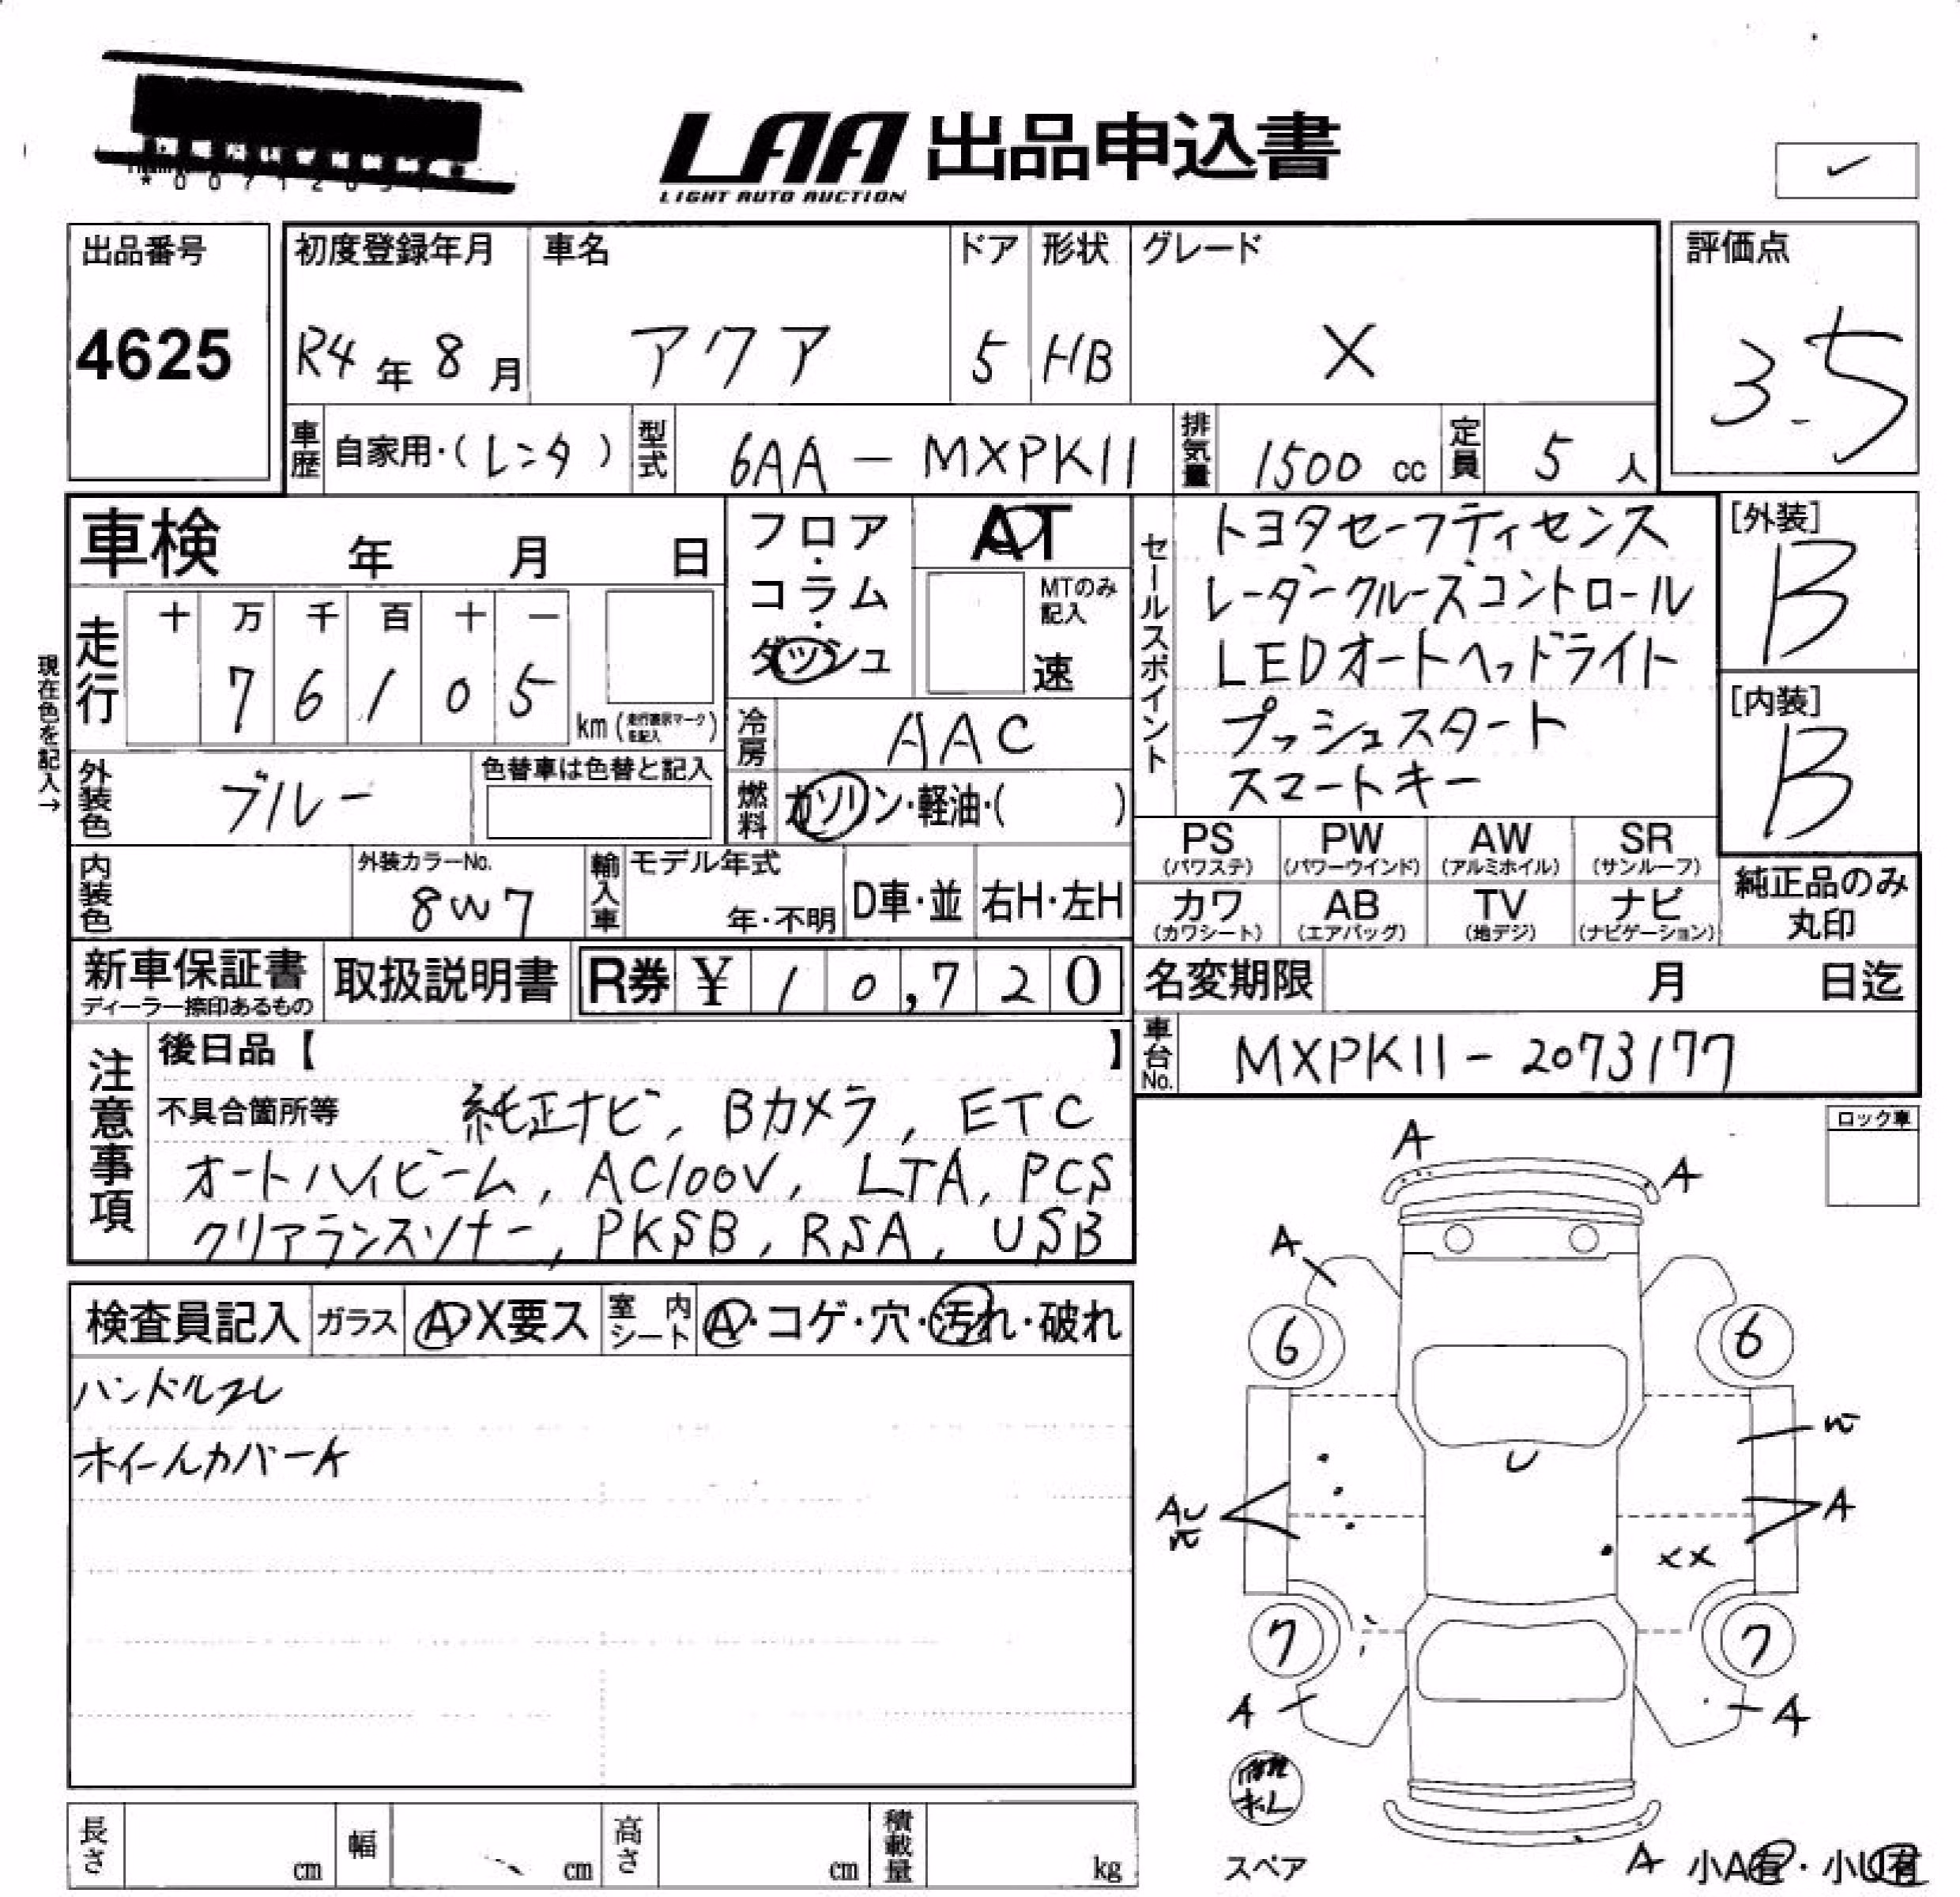 LAA 出品申込書
LIGHT AUTO AUCTION
✓
出品番号
4625
初度登録年月
R4年8月
車名
アクア
ドア
5
形状
HB
グレード
X
評価点
3.5
車歴
自家用・(レンタ)
型式
6AA－MXPK11
排気量
1500 cc
定員
5人
車検 年 月 日
フロア・コラム・ダッシュ
AT
MTのみ記入
速
セールスポイント
トヨタセーフティセンス
レーダークルーズコントロール
LEDオートヘッドライト
プッシュスタート
スマートキー
[外装]
B
[内装]
B
現在色を記入→
走行
十 万 千 百 十 一
7 6 1 0 5
km(走行表示マークを記入)
冷房
AAC
外装色
ブルー
色替車は色替と記入
燃料
ガソリン・軽油・( )
PS (パワステ)
PW (パワーウインド)
AW (アルミホイル)
SR (サンルーフ)
カワ (カワシート)
AB (エアバッグ)
TV (地デジ)
ナビ (ナビゲーション)
純正品のみ丸印
内装色
外装カラーNo.
8W7
輸入車
モデル年式
年・不明
D車・並
右H・左H
新車保証書
ディーラー捺印あるもの
取扱説明書
R券 ¥10,720
名変期限 月 日迄
車台No.
MXPK11－2073177
注意事項
後日品【 】
不具合箇所等
純正ナビ, Bカメラ, ETC
オートハイビーム, AC100V, LTA, PCS
クリアランスソナー, PKSB, RSA, USB
ロック車
検査員記入
ガラス
A X要ス
室内シート
A・コゲ・穴・汚れ・破れ
ハンドルスレ
ホイールカバーA
A
A
A
6
6
U
AU
A
XX
7
7
A
A
長さ cm
幅 cm
高さ cm
積載量 kg
スペア
A 小A有・小U有